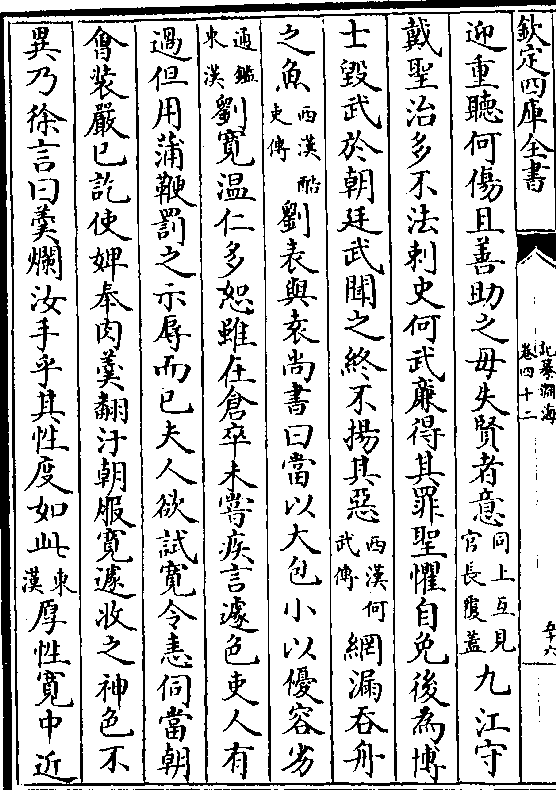 欽定四庫全書
記纂淵海
卷四十二
五十六
迎重聽何傷且善助之毋失賢者意同上互見官長覆蓋九江守
戴聖治多不法刺史何武廉得其罪聖懼自免後為博
士毀武於朝廷武聞之終不揚其惡西漢何武傳網漏吞舟
之魚西漢酷吏傳劉表與袁尚書曰當以大包小以優容劣
通鑑東漢劉寛温仁多恕雖在倉卒未嘗疾言遽色吏人有
過但用蒲鞭罰之示辱而已夫人欲試寛令恚伺當朝
會装嚴已訖使婢奉肉羮翻汙朝服寛遽收之神色不
異乃徐言曰羮爛汝手乎其性度如此東漢厚性寛中近